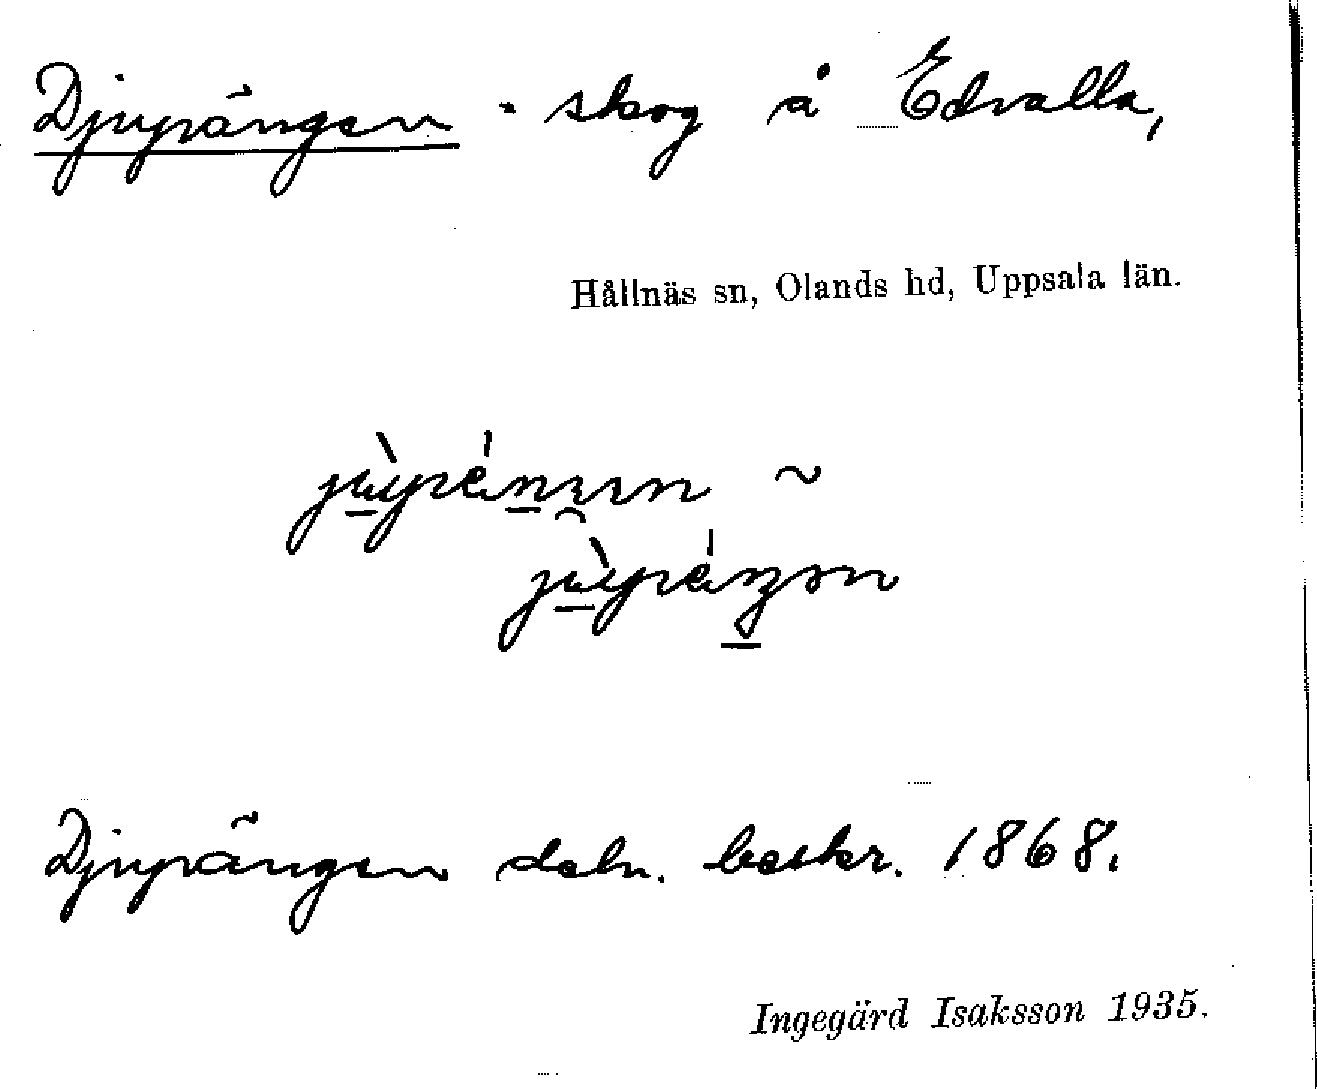 Djupängen - skog å Edvalla,
Hållnäs sn, Olands hd, Uppsala län.
~
Djupängen deln. beskr. 1868.
Ingegärd Isaksson 1935.